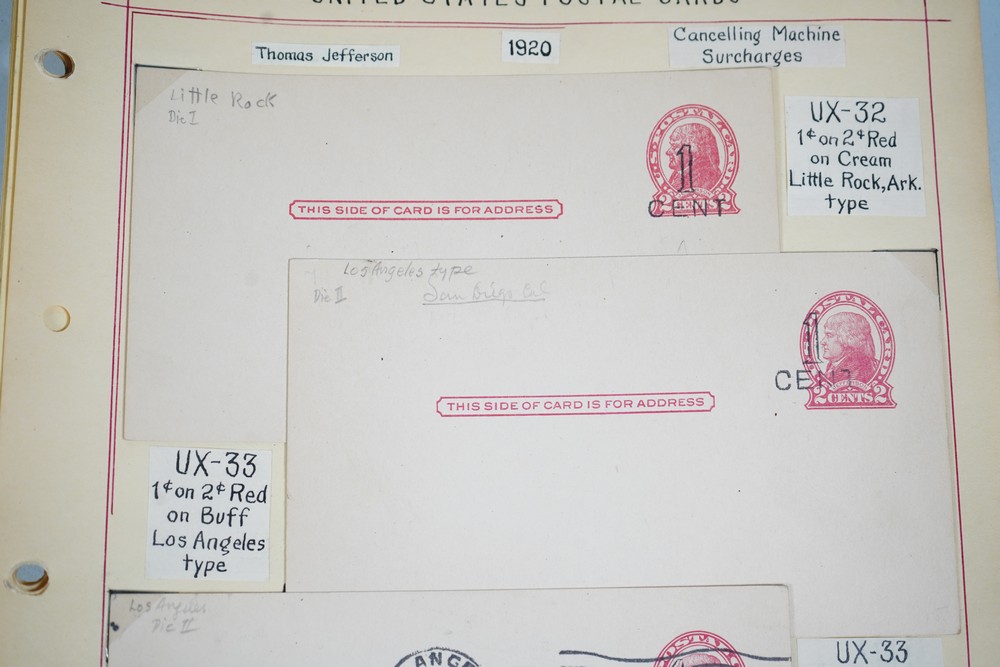 UNITED STATES POSTAL CARDS
Thomas Jefferson
1920
Cancelling Machine
Surcharges
Little Rock
Die I
1
CENT
2 CENTS 2
THIS SIDE OF CARD IS FOR ADDRESS
UX-32
1¢ on 2¢ Red
on Cream
Little Rock, Ark.
type
Los Angeles type
Die II
San Diego Cal
U.S. POSTAL CARD
1
CENT
2 CENTS 2
THIS SIDE OF CARD IS FOR ADDRESS
UX-33
1¢ on 2¢ Red
on Buff
Los Angeles
type
Los Angeles
Die II
ANGE
UX-33